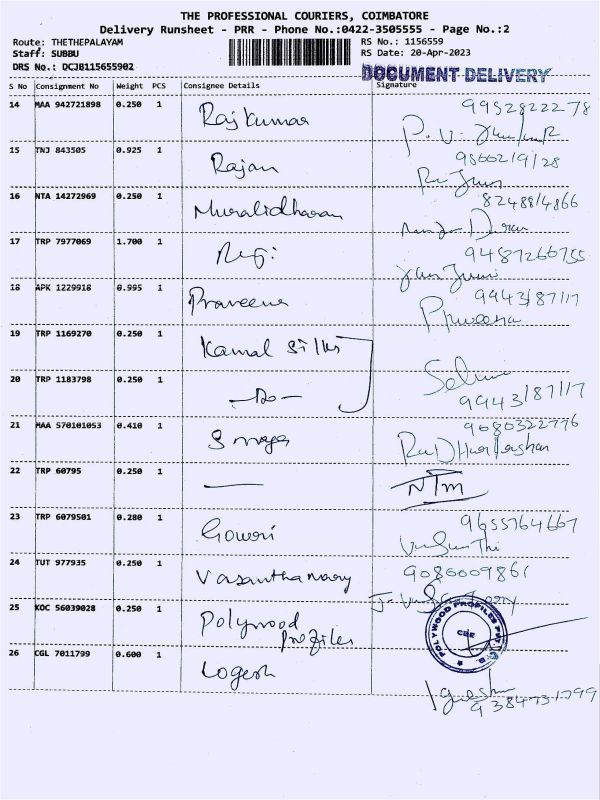 THE PROFESSIONAL COURIERS, COIMBATORE
Delivery Runsheet - PRR - Phone No.:0422-3505555 - Page No.:2
Route: THETHEPALAYAM
RS No.: 1156559
Staff: SUBBU
RS Date: 20-Apr-2023
DRS No.: DCJB115655902
DOCUMENT DELIVERY
S No Consignment No Weight PCS Consignee Details Signature
14 MAA 942721898 0.250 1 Rajkumar 9952822278
15 TNJ 843505 0.925 1 Rajan
16 NTA 14272969 0.250 1 Muralidharan 8248814866
17 TRP 7977069 1.700 1 Regi 9487266755
18 APK 1229918 0.995 1 Praveena 9943187117
Praveena
19 TRP 1169270 0.250 1 Kamal Silks
20 TRP 1183798 0.250 1 -Do-
9943187117
21 MAA 570101053 0.410 1 9080322776
22 TRP 60795 0.250 1 — NTM
23 TRP 6079501 0.280 1 Gowri 9655764667
24 TUT 977935 0.250 1 9086009861
25 KOC 56039028 0.250 1 Polywood
Profiles
POLYWOOD PROFILES PVT. LTD.
CBE
26 CGL 7011799 0.600 1 Logesh
9384731799